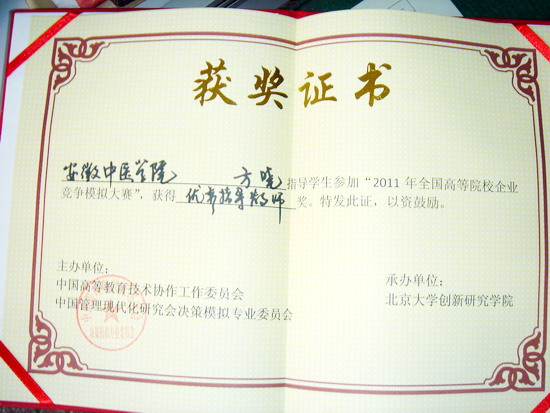 获奖证书
安徽中医学院 方晓 指导学生参加“2011年全国高等院校企业
竞争模拟大赛”，获得 优秀指导教师 奖。特发此证，以资鼓励。
主办单位：
中国高等教育技术协作工作委员会
中国管理现代化研究会决策模拟专业委员会
承办单位：
北京大学创新研究学院